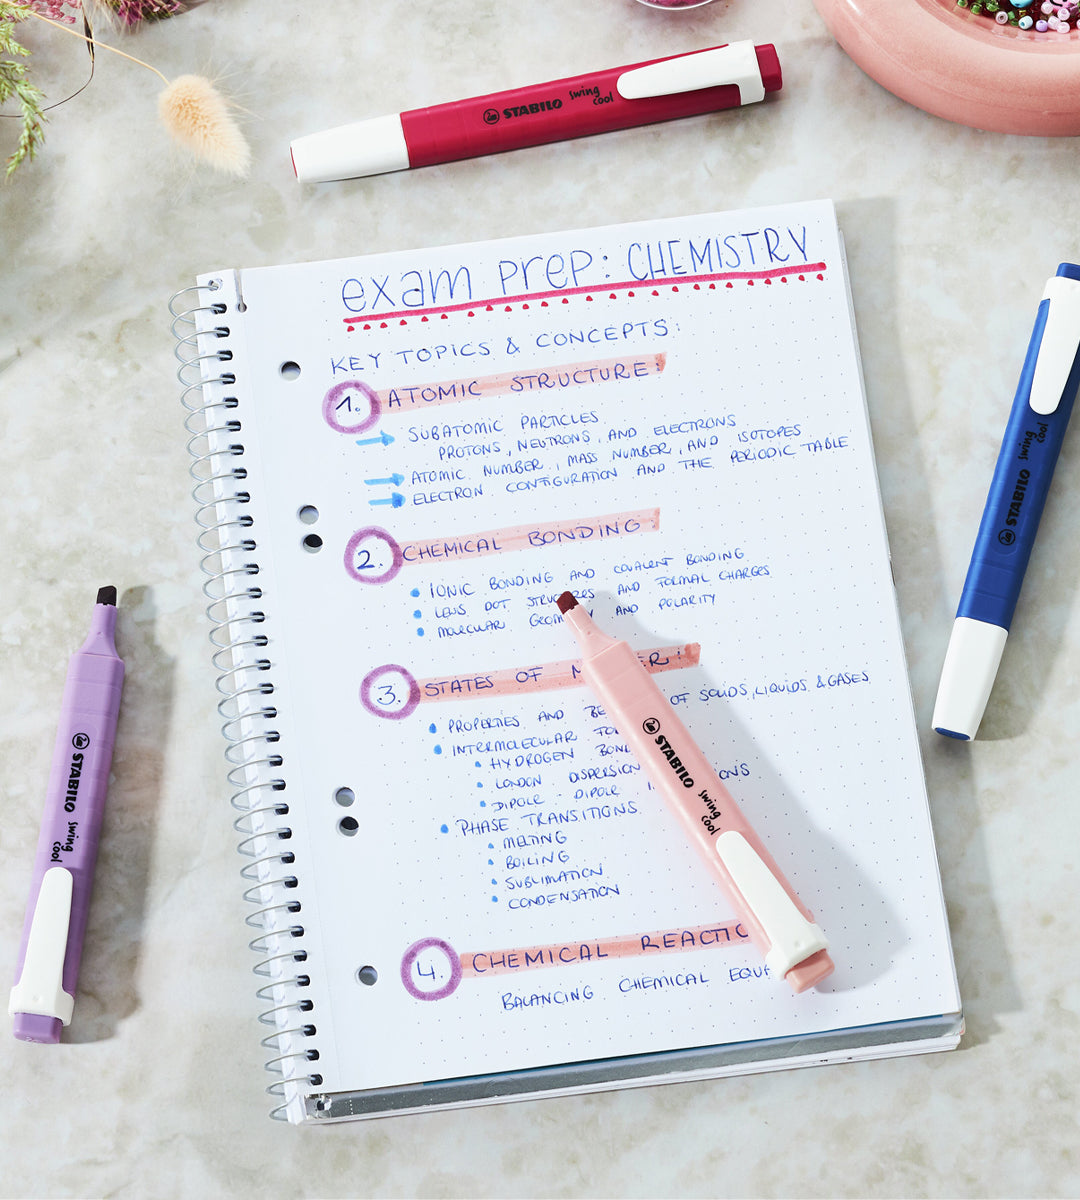 STABILO swing cool
exam prep: CHEMISTRY
KEY TOPICS & CONCEPTS:
1. ATOMIC STRUCTURE:
SUBATOMIC PARTICLES
PROTONS, NEUTRONS, AND ELECTRONS
ATOMIC NUMBER, MASS NUMBER, AND ISOTOPES
ELECTRON CONFIGURATION AND THE PERIODIC TABLE
2. CHEMICAL BONDING:
• IONIC BONDING AND COVALENT BONDING
• LEWIS DOT AND FORMAL CHARGES
• MOLECULAR AND POLARITY
3. STATES OF
• PROPERTIES AND OF SOLIDS, LIQUIDS & GASES
• INTERMOLECULAR
• HYDROGEN
• LONDON DISPERSION
• DIPOLE - DIPOLE
• PHASE TRANSITIONS
• MELTING
• BOILING
• SUBLIMATION
• CONDENSATION
4. CHEMICAL
BALANCING CHEMICAL
STABILO swing cool
STABILO swing cool
STABILO swing cool